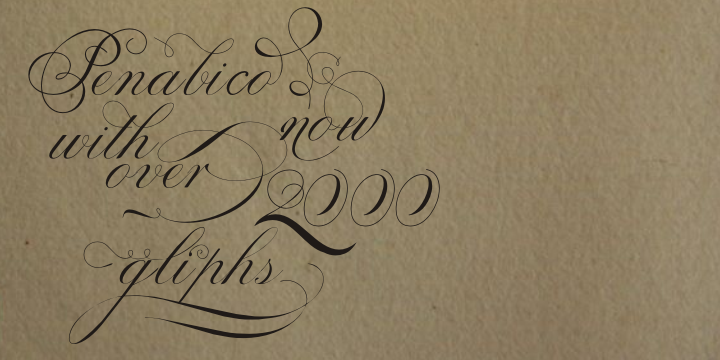 Penabico
now
with
over
2000
gliphs